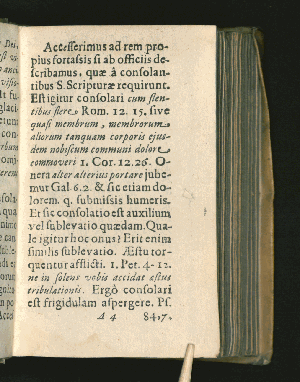 Accesserimus ad rem pro-
pius fortassis si ab officiis de-
scribamus, quæ à consolan-
tibus S. Scripturæ requirunt.
Est igitur consolari cum flen-
tibus flere Rom. 12. 15. sive
quasi membrum, membrorum
aliorum tanquam corporis ejus-
dem nobiscum communi dolore
commoveri 1. Cor. 12.26. O-
nera alter alterius portare jube-
mur Gal. 6.2. & sic etiam do-
lorem. q. submissis humeris.
Et sic consolatio est auxilium
vel sublevatio quædam. Qua-
le igitur hoc onus? Erit enim
similis sublevatio. Æstu tor-
quentur afflicti. 1. Pet. 4-12.
ne in solens vobis accidat æstus
tribulationis. Ergò consolari
est frigidulam aspergere. Ps.
A 4 84.7.